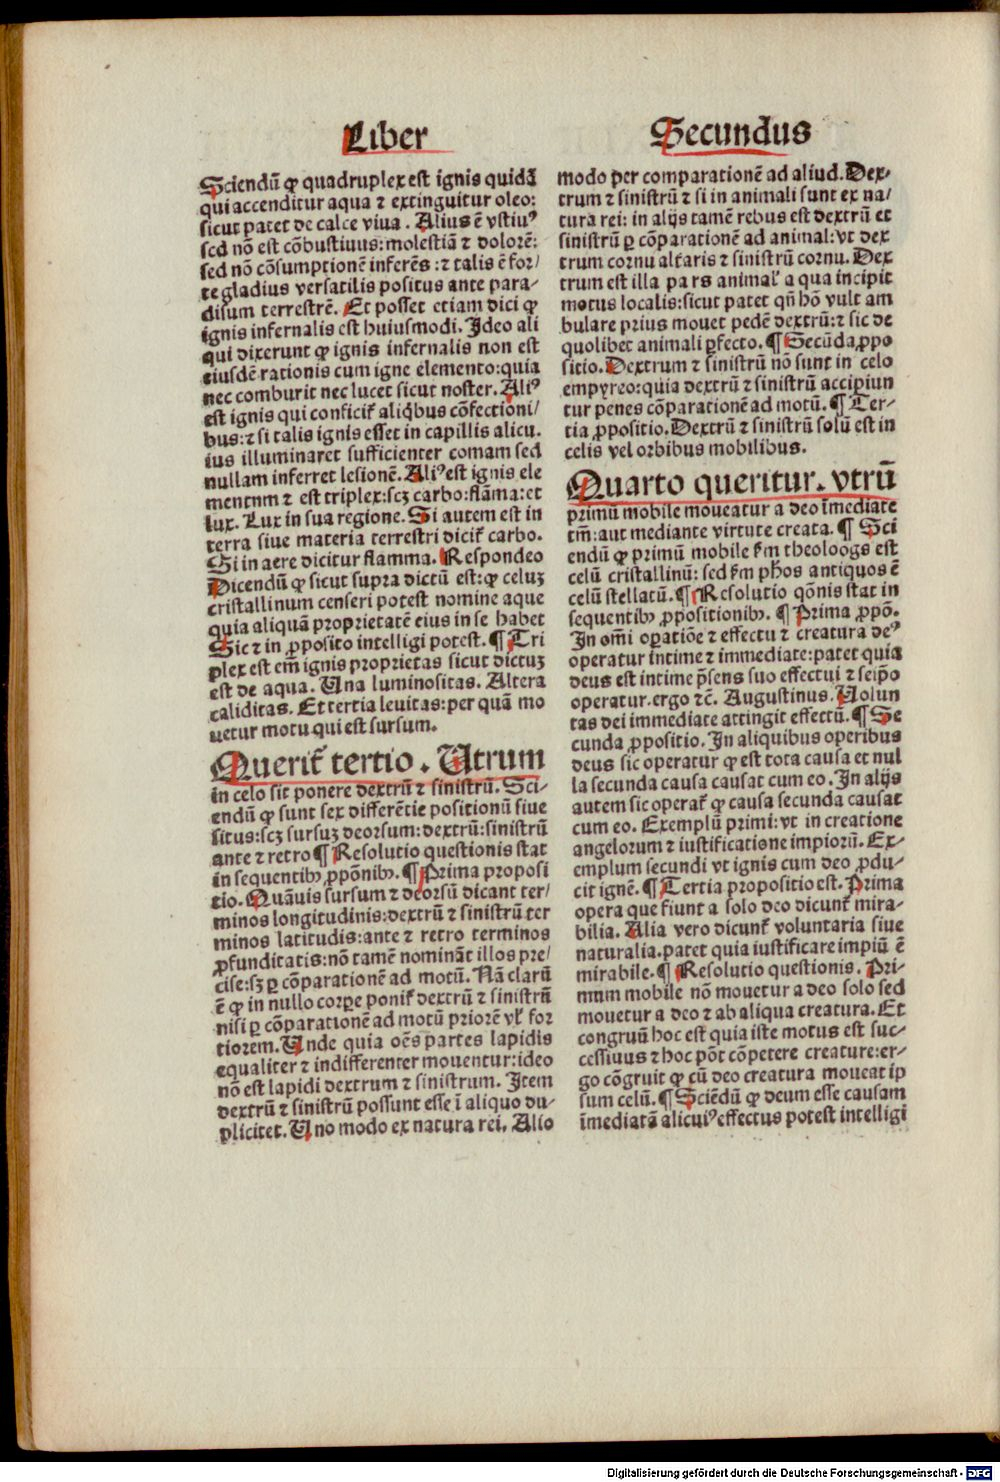 Liber
Secundus
Sciendū ꝙ quadruplex est ignis quidā
qui accenditur aqua ⁊ extinguitur oleo:
sicut patet de calce viua . Alius ē vstiuꝰ
sed nō est cōbustiuus: molestiā ⁊ dolorē:
sed nō cōsumptionē inferēs : ⁊ talis ē for/
te gladius versatilis positus ante para-
disum terrestrē. Et posset etiam dici ꝙ
ignis infernalis est huiusmodi. Ideo ali
qui dixerunt ꝙ ignis infernalis non est
eiusdē rationis cum igne elemento: quia
nec comburit nec lucet sicut noster. Aliꝰ
est ignis qui conficit᷑ aliq̇bus cōfectioni/
bus: ⁊ si talis ignis esset in capillis alicu.
ius illuminaret sufficienter comam sed
nullam inferret lesionē. Aliꝰ est ignis ele
mentnm ⁊ est triplex: scꝫ carbo: flāma: et
lux. Lux in sua regione. Si autem est in
terra siue materia terrestri dicit᷑ carbo.
Si in aere dicitur flamma. Respondeo
Dicendū ꝙ sicut supra dictū est: ꝙ celuꝫ
cristallinum censeri potest nomine aque
quia aliquā proprietatē eius in se habet
Sic ⁊ in ꝓposito intelligi potest. ¶ Tri
plex est em̄ ignis proprietas sicut dictuꝫ
est de aqua. Una luminositas. Altera
caliditas. Et tertia leuitas: per quā mo
uetur motu qui est sursum.
Querit᷑ tertio . Utrum
in celo sit ponere dextrū ⁊ sinistrū. Sci-
endū ꝙ sunt sex differētie positionū siue
situs: scꝫ sursuꝫ deorsum: dextrū: sinistrū
ante ⁊ retro ¶ Resolutio questionis stat
in sequentibꝰ ꝓpōnibꝰ. ¶ Prima proposi
tio. Quāuis sursum ⁊ deorsū dicant ter/
minos longitudinis: dextrū ⁊ sinistrū ter
minos latitudis: ante ⁊ retro terminos
ꝓfunditatis: nō tamē nomināt illos pre/
cise: sꝫ ꝑ cōparationē ad motū. Nā clarū
ē ꝙ in nullo corꝑe ponit᷑ dextrū ⁊ sinistrū
nisi ꝑ cōparationē ad motū priorē vl᷑ for
tiorem. Unde quia oēs partes lapidis
equaliter ⁊ indifferenter mouentur: ideo
nō est lapidi dextrum ⁊ sinistrum. Item
dextrū ⁊ sinistrū possunt esse ī aliquo du-
pliciter. Uno modo ex natura rei. Alio
modo per comparationē ad aliud. Dex-
trum ⁊ sinistrū ⁊ si in animali sunt ex na/
tura rei: in alijs tamē rebus est dextrū et
sinistrū ꝑ cōparationē ad animal: vt dex
trum cornu altaris ⁊ sinistrū cornu. Dex
trum est illa pars animal᷑ a qua incipit
motus localis: sicut patet qn̄ hō vult am
bulare prius mouet pedē dextrū: ⁊ sic de
quolibet animali ꝑfecto. ¶ Secūda ꝓpo
sitio. Dextrum ⁊ sinistrū nō sunt in celo
empyreo: quia dextrū ⁊ sinistrū accipiun
tur penes cōparationē ad motū. ¶ Ter-
tia ꝓpositio. Dextrū ⁊ sinistrū solū est in
celis vel orbibus mobilibus.
Quarto queritur. vtrū
primū mobile moueatur a deo īmediate
tm̄: aut mediante virtute creata. ¶ Sci
endū ꝙ primū mobile ẜm theoloogs est
celū cristallinū: sed ẜm ph̄os antiquos ē
celū stellatū. ¶ Resolutio qōnis stat in
sequentibꝰ ꝓpositionibꝰ. ¶ Prima ꝓpō.
In om̄i oꝑatiōe ⁊ effectu ⁊ creatura deꝰ
operatur intime ⁊ immediate: patet quia
deus est intime p̄sens suo effectui ⁊ seip̄o
operatur. ergo ⁊c̄. Augustinus. Uolun
tas dei immediate attingit effectū. ¶ Se
cunda ꝓpositio. In aliquibus operibus
deus sic operatur ꝙ est tota causa et nul
la secunda causa causat cum eo. In alijs
autem sic operat᷑ ꝙ causa secunda causat
cum eo. Exemplū primi: vt in creatione
angelorum ⁊ iustificatione impiorū. Ex-
emplum secundi vt ignis cum deo ꝓdu-
cit ignē. ¶ Tertia propositio est. Prima
opera que fiunt a solo deo dicunt᷑ mira-
bilia. Alia vero dicunt᷑ voluntaria siue
naturalia. patet quia iustificare impiū ē
mirabile. ¶ Resolutio questionis. Pri-
mum mobile nō mouetur a deo solo sed
mouetur a deo ⁊ ab aliqua creatura. Et
congruū hoc est quia iste motus est suc-
cessiuus ⁊ hoc pōt cōpetere creature: er-
go cōgruit ꝙ cū deo creatura moueat ip
sum celū. ¶ Sciēdū ꝙ deum esse causam
īmediatā alicuiꝰ effectus potest intelligi
Digitalisierung gefördert durch die Deutsche Forschungsgemeinschaft - DFG